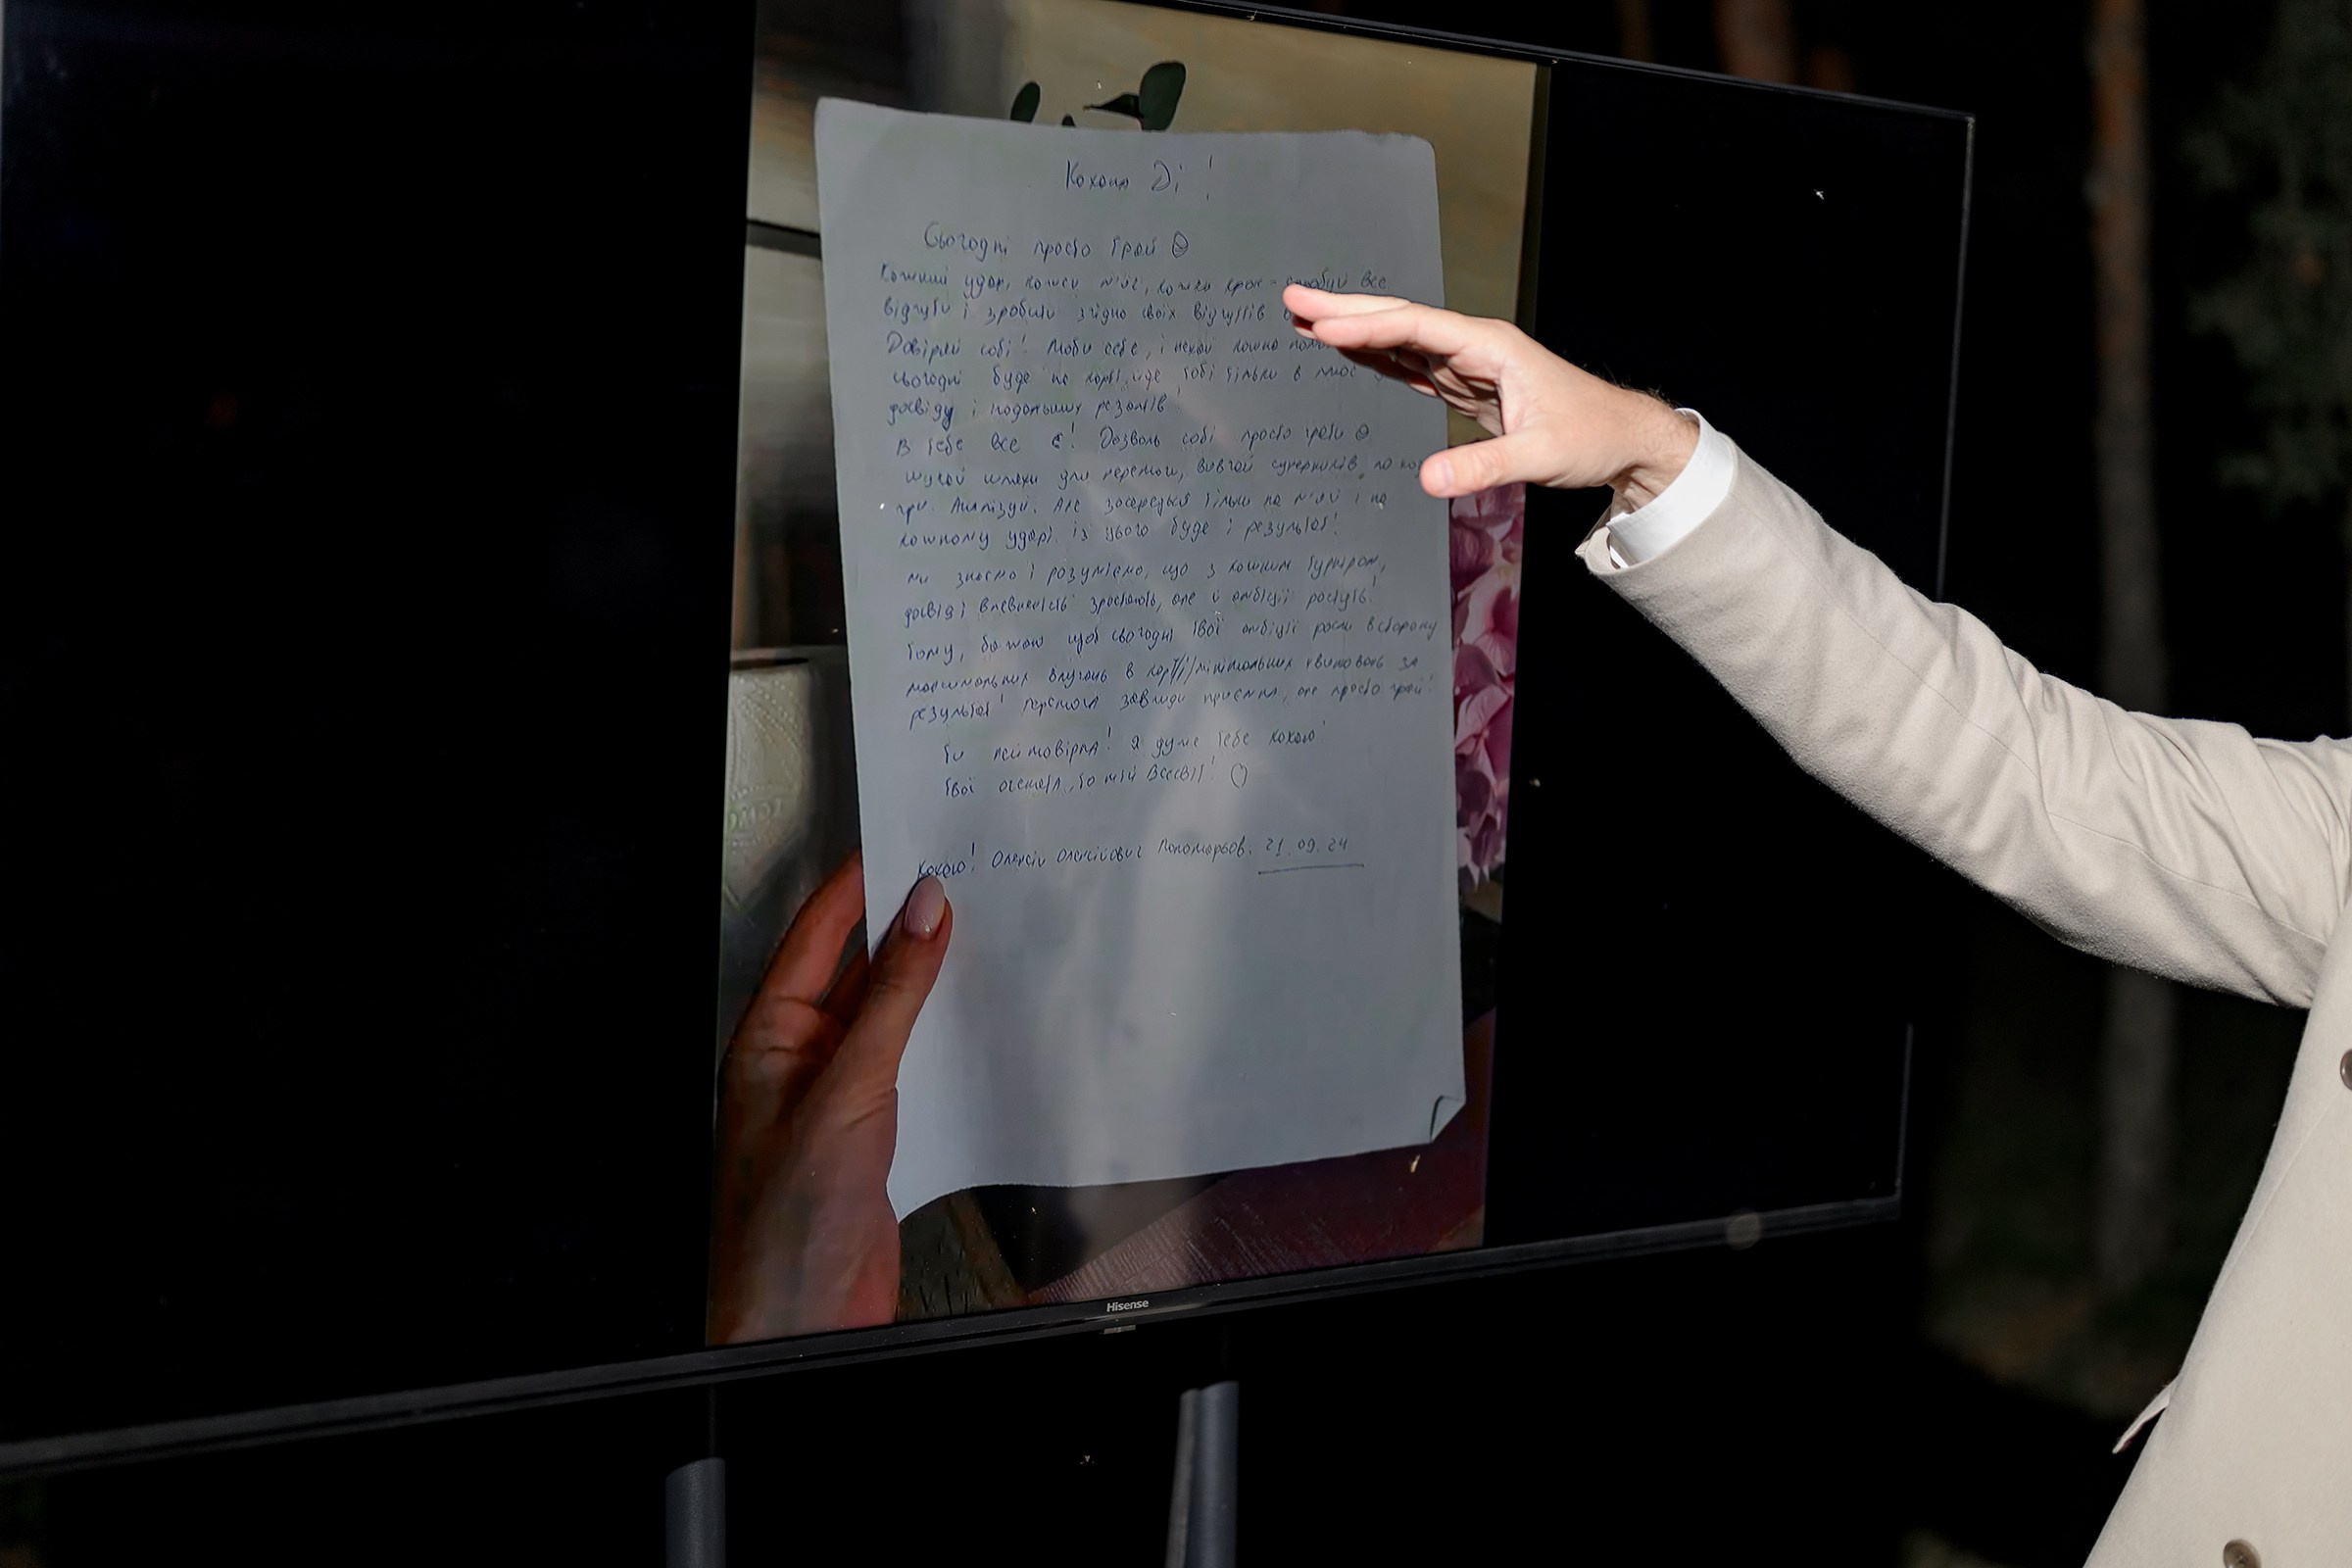 Кохана Ді!
Сьогодні просто грай
Кожний удар, кожен м'яч, кожен крок - спробуй все
відчути і зробити згідно своїх відчуттів
Довіряй собі! Люби себе, і нехай кожна
сьогодні буде на корті, йде тобі тільки в плюс
досвіду і подальших результатів!
В тебе все є! Дозволь собі просто грати
шукай шляхи для перемоги, вивчай суперників, по
грі. Аналізуй. Але зосередься тільки на м'ячі і на
кожному ударі. із цього буде і результат!
ми знаємо і розуміємо, що з кожним турніром,
досвід і впевненість зростають, але й амбіції ростуть!
Тому, бажаю щоб сьогодні твої амбіції росли в сторону
максимальних влучань в корт/мінімальних хвилювань за
результат! Перемога завжди приємна, але просто грай!
Ти неймовірна! Я дуже тебе кохаю!
Твої оченята, то мій Всесвіт!
Кохаю! Олексій Олексійович Пономарьов. 21.09.24
Hisense